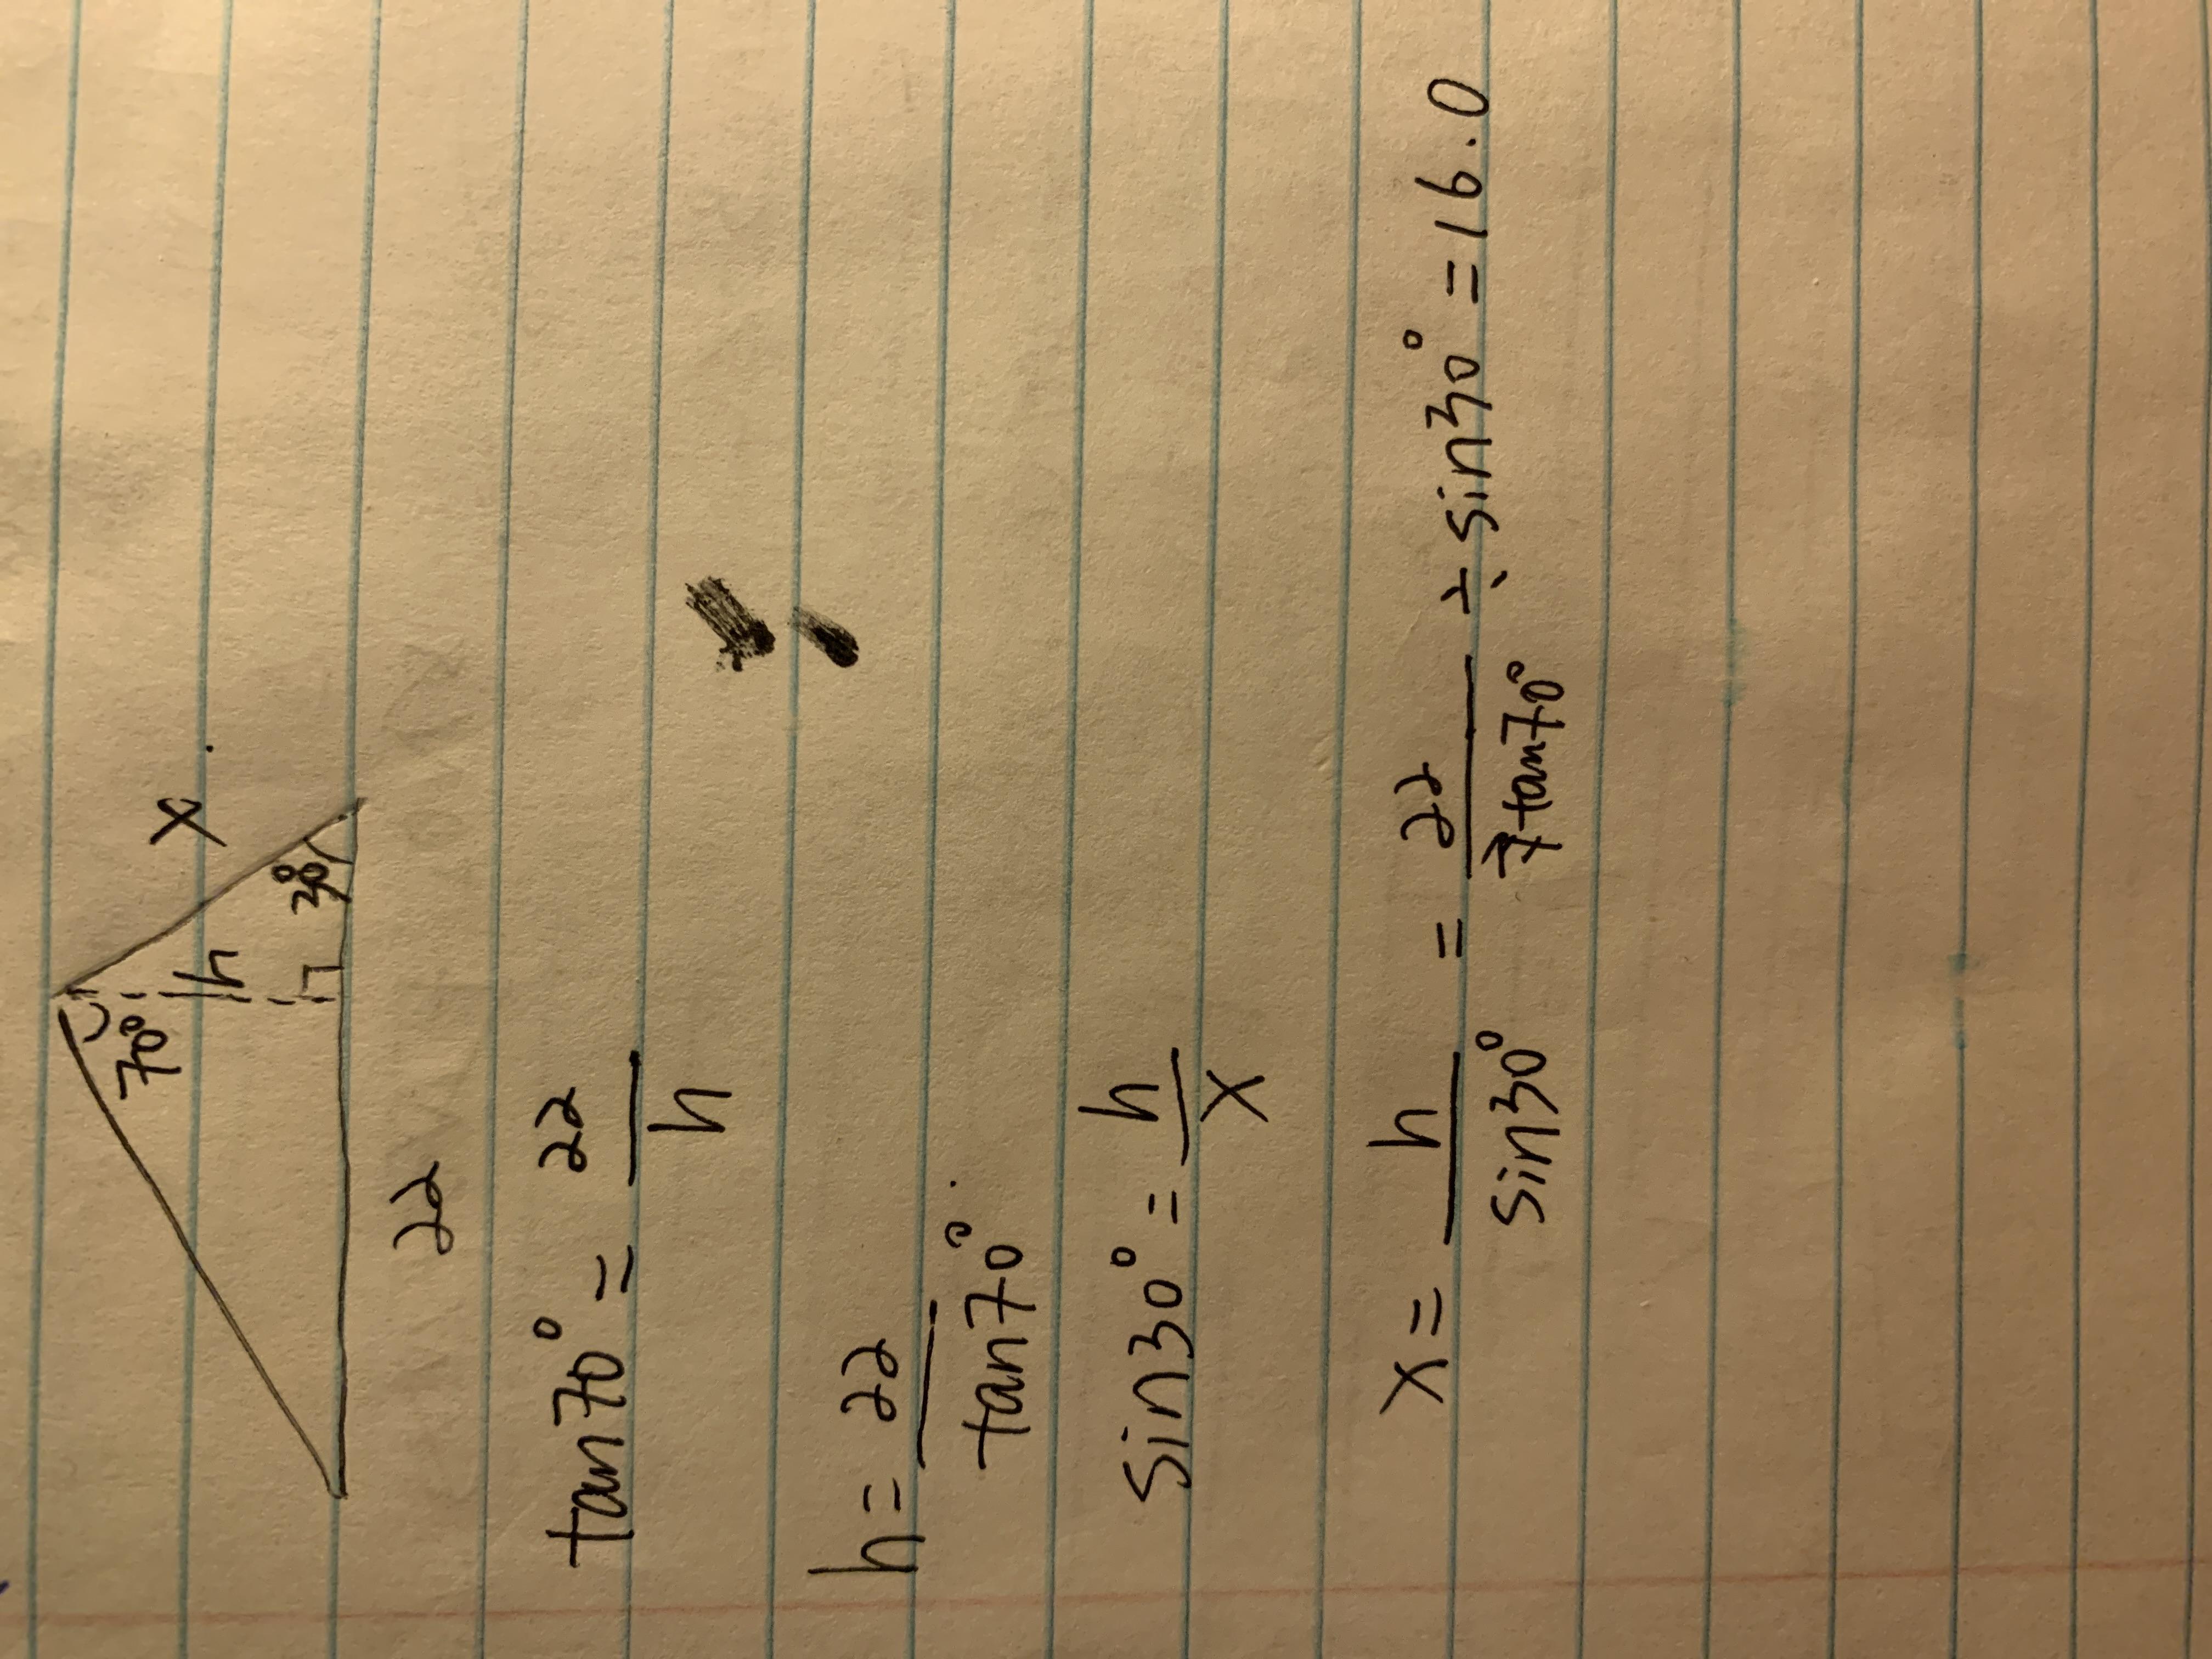 x
70° h 30°
22
tan70° = 22/h
h = 22/tan70°
sin30° = h/x
x = h/sin30° = 22/tan70° ÷ sin30° = 16.0